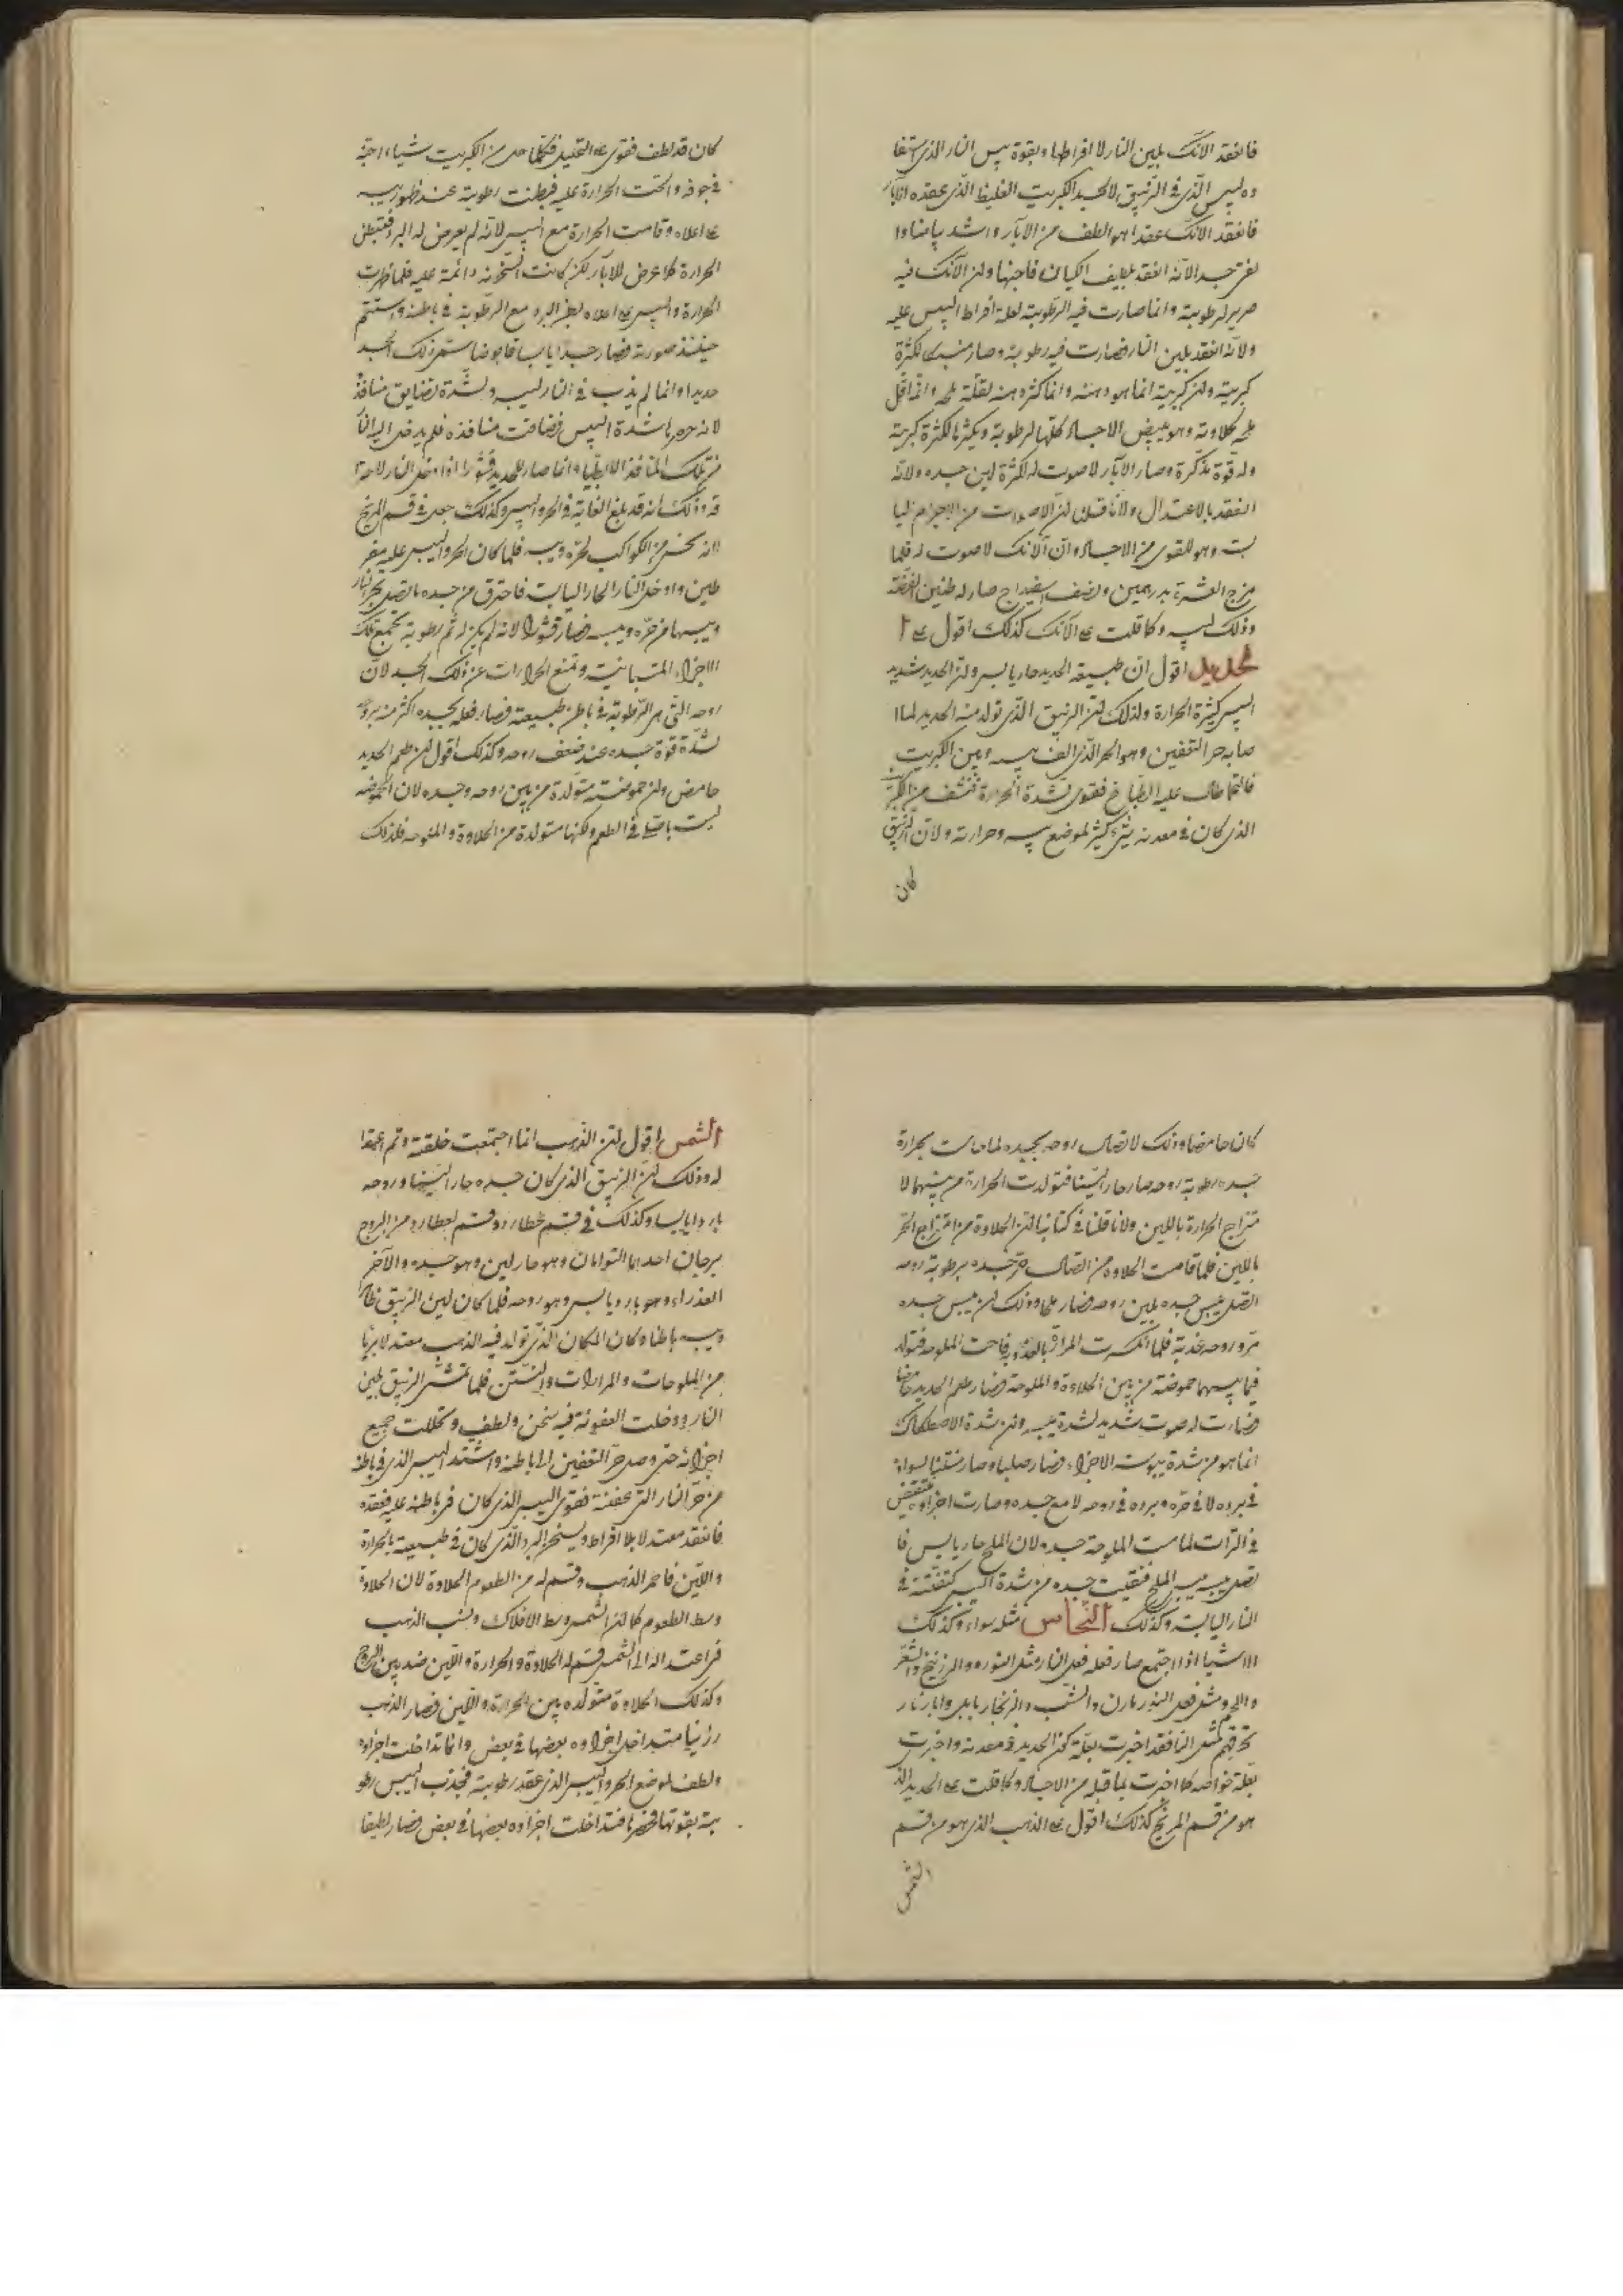 فانعقد الانك بلين النار لا افراطها وبقوة يبس النار الذى
الذى فى الزيبق لا لجسد الكبريت الغليظ الذى عقده الابار
فانعقد الانك عقدا هو الطف من الابار واشد بياضا
جسد الانه انعقد الانك فيه
لرطوبة وانما صارت فيه الرطوبة لعلة افراط اليبس عليه
ولانه انعقد بلين النار فصارت فيه رطوبة وصار لكثرة
كبريته ولان كبريته انما هو دهنه وانما كثر دهنه لقلة ملحه وانما قل
ملحه لحلاوته وهو يبيض الاجساد كلها لرطوبة لكثرة كبريته
وله قوة مذكرة وصار الابار لا صوت له لكثرة لين جسده ولانه
انعقد بالاعتدال ولانا قلنا ان الاصوات من الاجرام
وهو للقوى من الاجساد وان الانك لا صوت له فلما
مزج العشرة بدرهمين ونصف اسفيداج صار له طنين الفضة
وذلك ليبسه وكما قلت على الانك كذلك اقول على ا
لحديد اقول ان طبيعة الحديد حار يابس ولان الحديد شديد
اليبس كثيرة الحرارة ولذلك لان الزيبق الذى تولد منه الحديد لما ا
صابه حر التعفين وهو الحر الذى الف بينه وبين الكبريت
طال عليه الطباخ فقوى لشدة الحرارة فنشف من الكبريت
الذى كان فى معدنه شىء كثير لموضع يبسه وحرارته ولان الزيبق
كان
كان قد لطف فقوى على التحليل فكلما حل من الكبريت شيئا اجنه
فى جوفه والحت الحرارة عليه فبطنت رطوبته عند ظهور يبسه
على اعلاه وقامت الحرارة مع اليبس لانه لم يعرض له البرد فتبطن
الحرارة كما عرض للابار لكن كانت السخونة دائمة عليه فلما ظهرت
الحرارة واليبس على اعلاه بطن البرد مع الرطوبة فى باطنه واستتم
حينئذ صورته فصار جسدا يابسا قابضا سمى ذلك الجسد
حديدا وانما لم يذب فى النار ليبسه ولشدة تضايق منافذه
لانه شدة اليبس فضاقت منافذه فلم يدخل اليه النار
من تلك المنافذ الا بطيا وانما صار للحديد قشورا اذا دخل النار لاحترا
قه وذلك انه قد بلغ الغاية فى الحر واليبس وكذلك جعل فى قسم المريخ
لانه نحس من الكواكب لحره ويبسه فلما كان الحر واليبس عليه مفر
طين وادخل النار الحار اليابسة فاحترق من جسده ما اتصل بحر النار
ويبسها من حره ويبسه فصار قشورا لانه لم يكن له ثم رطوبة تجمع تلك
الاجزاء المتباينة وتمنع الحرارات عن ذلك الجسد لان
روحه التى هى الرطوبة فى باطن طبيعته فصار فعله بجسده اكثر منه بروحه
لشدة قوة جسده عند ضعف روحه وكذلك اقول ان طعم الحديد
حامض وان حموضته متولدة من بين روحه وجسده لان الحموضة
ليست باصل فى الطعم ولكنها متولدة من الحلاوة والملوحة فلذلك
كان حامضا وذلك لاتصال روحه بجسده لما جاست بحرارة
جسده رطوبة روحه صار حارا لينا فتولدت الحرارة من بينهما لا
متزاج الحرارة باللين ولانا قلنا فى كتابنا ان الحلاوة من امتزاج الحر
باللين فلما قامت الحلاوة من اتصال حر جسده برطوبة روحه
اتصل يبس جسده بلين روحه فصار ملحا وذلك ان يبس جسده
مر وروحه عذبة فلما انكسرت المرارة بالعذوبة فاحت الملوحة فتولد
فيما بينهما حموضة من بين الحلاوة والملوحة فصار طعم الحديد حامضا
فصارت له صوت شديد لشدة يبسه ولان شدة الاصطكاك
انما هو من شدة يبوسة الاجزاء فصار صلبا وصار
فى برده لا فى حره وبرده فى روحه لا مع جسده وصارت اجزاوه
لما ست الملوحة جسده لان الملح حار يابس فا
تصل يبسه بيبس الملح فبقيت جسده من شدة اليبس
النار اليابسة وكذلك النحاس مثله سواء وكذلك
الاشيا اذا اجتمع صار فعله فعل النار مثل النوره والزرنيخ والشعر
والشب والزنجار
النار فقد اخبرت بعلة كون الحديد فى معدنه واخبرت
بعلة خواصه كما اخبرت بما قبله من الاجساد وكما قلت على الحديد الذ
هو من قسم المريخ كذلك اقول على الذهب الذى هو من قسم
الشمس
الشمس اقول ان الذهب انما اجتمعت خلقته وتم
له وذلك ان الزيبق الذى كان جسده حارا لينا وروحه
باردا يابسا وكذلك فى قسم عطارد وقسم لعطارد من البروج
برجان احدهما التوامان وهو حار لين وهو جسده والاخر
العذراء وهو بارد يابس وهو روحه فلما كان لين الزيبق ظاهرا
ويبسه باطنا وكان المكان الذى تولد فيه الذهب معتدلا بريا
من الملوحات والمرارات والنتن فلما الزيبق بلين
النار ودخلت العفونة فيه سخن ولطف وتحللت جميع
اجزائه حتى وصل حر التعفين الى باطنه واشتد اليبس الذى فى باطنه
من حر النار التى عفنته فقوى اليبس الذى كان فى باطنه عليه فعقده
فانعقد معتدلا بلا افراط ويسخن البرد الذى كان فى طبيعته بالحرارة
واللين فاحمر الذهب وقسم له من الطعوم الحلاوة لان الحلاوة
وسط الطعوم كما ان الشمس وسط الافلاك ونسب الذهب
فى اعتداله الى الشمس قسم له الحلاوة والحرارة واللين
وكذلك الحلاوة متولده بين الحرارة واللين فصار الذهب
رزينا متداخل اجزاوه بعضها فى بعض وانما تداخلت اجزاوه
ولطف لموضع الحر واليبس الذى عقد رطوبته فجذب اليبس رطو
بته بقوتها فتداخلت اجزاوه بعضها فى بعض فصار لطيفا